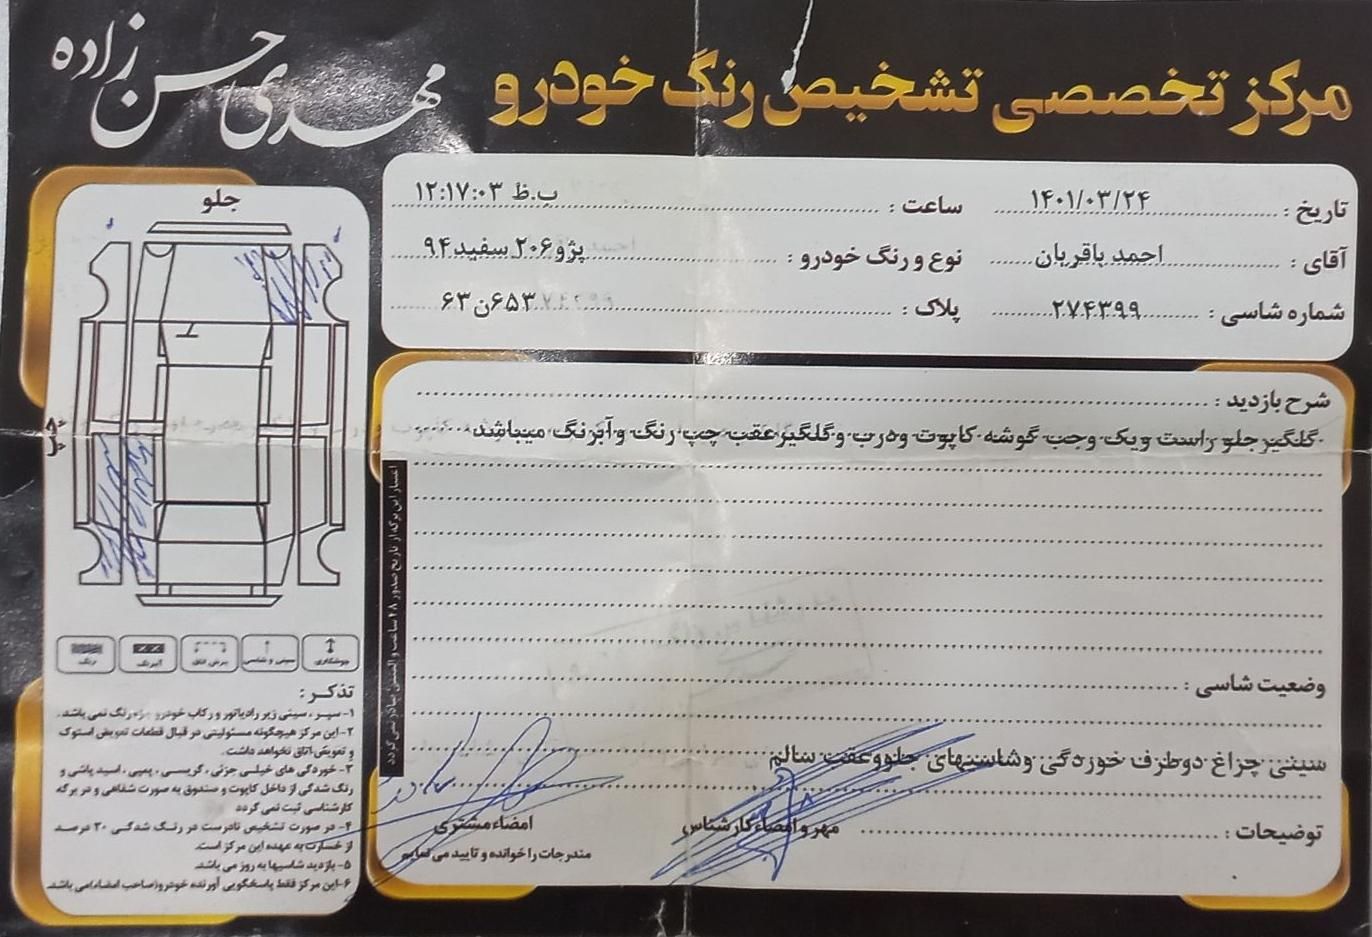 مرکز تخصصی تشخیص رنگ خودرو
مهدی حسن زاده
تاریخ : ۱۴۰۱/۰۳/۲۴ ساعت : ۱۲:۱۷:۰۳ ب.ظ
آقای : احمد باقریان نوع و رنگ خودرو : پژو۲۰۶ سفید۹۴
شماره شاسی : ۲۷۴۳۹۹ پلاک : ۶۵۳ن۶۳
شرح بازدید :
گلگیر جلو راست و یک وجب گوشه کاپوت ودرب وگلگیرعقب چپ رنگ وآبرنگ میباشد
وضعیت شاسی :
سینی چراغ دوطرف خوردگی وشاسیهای جلووعقب سالم
توضیحات :
مهر و امضاء کارشناس
امضاء مشتری
مندرجات را خوانده و تایید می نمایم
اعتبار این برگه از تاریخ صدور ۴۸ ساعت و المثنی صادر نمی گردد
جلو
جوشکاری
سینی و شاسی
برش اتاق
آبرنگ
رنگ
تذکر :
۱- سپر ، سینی زیر رادیاتور و رکاب خودرو جزء رنگ نمی باشد.
۲- این مرکز هیچگونه مسئولیتی در قبال قطعات تعویض استوک
و تعویض اتاق نخواهد داشت.
۳- خوردگی های خیلی جزئی ، گریسی ، پمپی ، اسید پاشی و
رنگ شدگی از داخل کاپوت و صندوق به صورت شفاهی و در برگه
کارشناسی ثبت نمی گردد
۴- در صورت تشخیص نادرست در رنگ شدگی ۳۰ درصد
از خسارت به عهده این مرکز است.
۵- بازدید شاسیها به روز می باشد.
۶- این مرکز فقط پاسخگویی آورنده خودرو(صاحب امضاء)می باشد